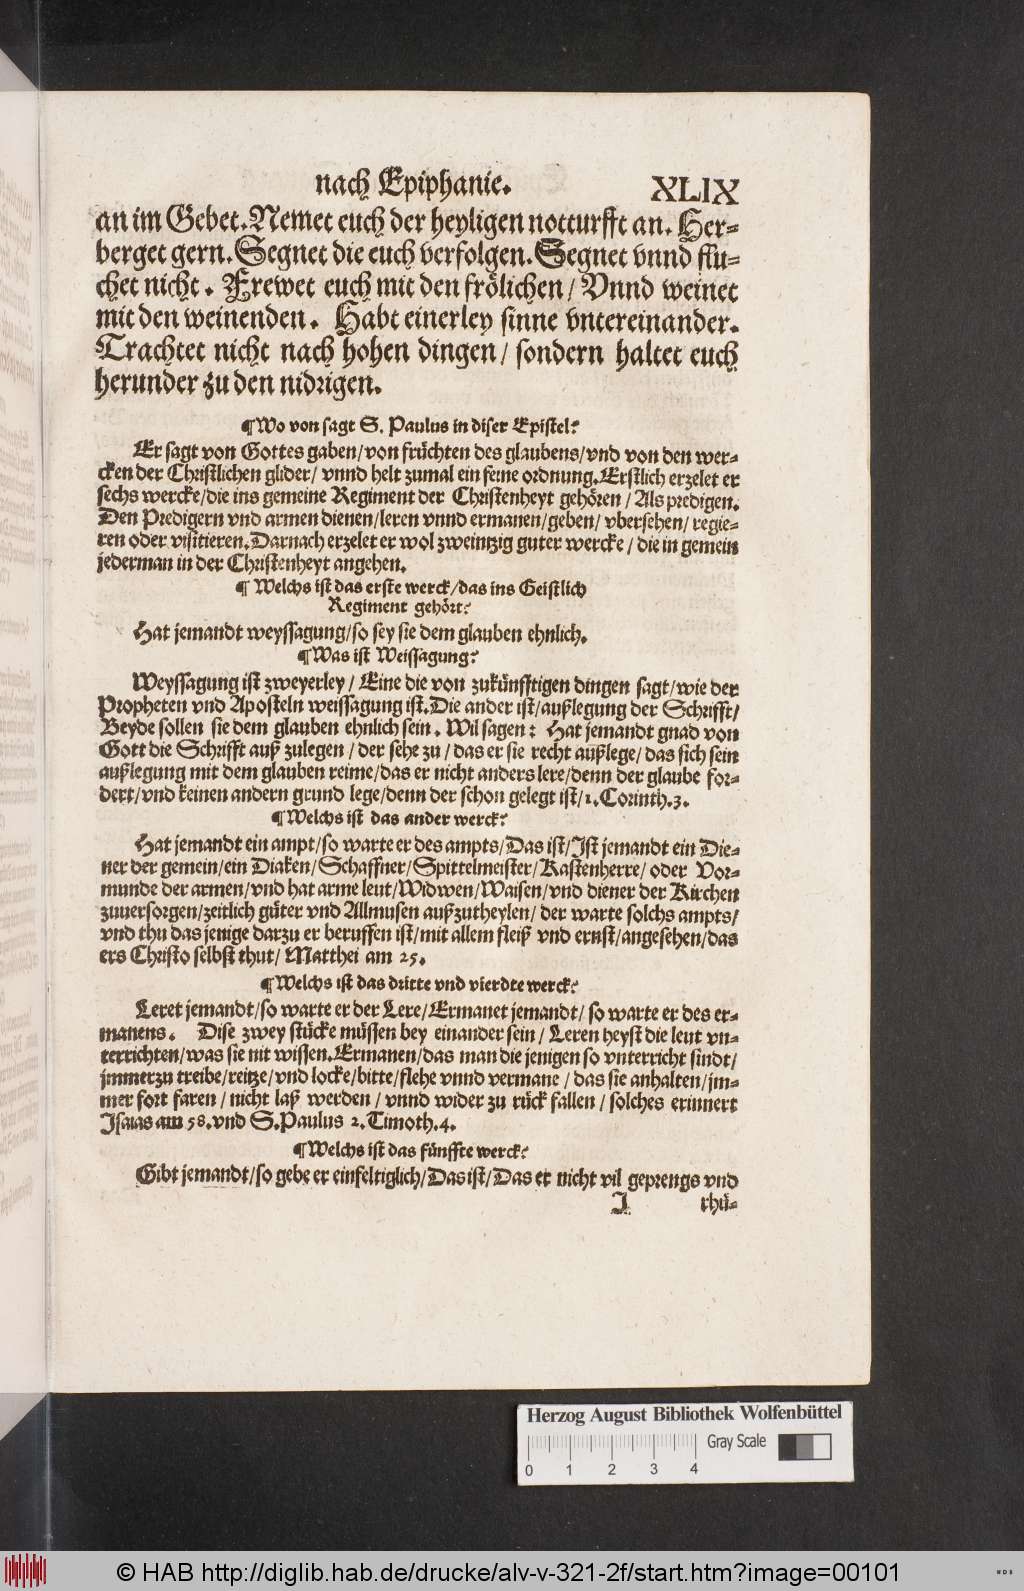 nach Epiphanie. XLIX
an im Gebet. Nemet euch der heyligen notturfft an. Her-
berget gern. Segnet die euch verfolgen. Segnet vnnd flu-
chet nicht. Frewet euch mit den frölichen/ Vnnd weinet
mit den weinenden. Habt einerley sinne vntereinander.
Trachtet nicht nach hohen dingen/ sondern haltet euch
herunder zu den nidrigen.
¶ Wo von sagt S. Paulus in diser Epistel?
Er sagt von Gottes gaben/ von früchten des glaubens/ vnd von den wer-
cken der Christlichen glider/ vnnd helt zumal ein feine ordnung. Erstlich erzelet er
sechs wercke/ die ins gemeine Regiment der Christenheyt gehören/ Als predigen.
Den Predigern vnd armen dienen/ leren vnnd ermanen/ geben/ vbersehen/ regie-
ren oder visitieren. Darnach erzelet er wol zweintzig guter wercke/ die in gemein
jederman in der Christenheyt angehen.
¶ Welchs ist das erste werck/ das ins Geistlich
Regiment gehört?
Hat jemandt weyssagung/ so sey sie dem glauben ehnlich.
¶ Was ist Weissagung?
Weyssagung ist zweyerley/ Eine die von zukünfftigen dingen sagt/ wie der
Propheten vnd Aposteln weissagung ist. Die ander ist/ außlegung der Schrifft/
Beyde sollen sie dem glauben ehnlich sein. Wil sagen: Hat jemandt gnad von
Gott die Schrifft auß zulegen/ der sehe zu/ das er sie recht außlege/ das sich sein
außlegung mit dem glauben reime/ das er nicht anders lere/ denn der glaube for-
dert/ vnd keinen andern grund lege/ denn der schon gelegt ist/ 1. Corinth. 3.
¶ Welchs ist das ander werck?
Hat jemandt ein ampt/ so warte er des ampts/ Das ist/ Ist jemandt ein Die-
ner der gemein/ ein Diaken/ Schaffner/ Spittelmeister/ Kastenherre/ oder Vor-
munde der armen/ vnd hat arme leut/ Widwen/ Waisen/ vnd diener der Kirchen
zuuersorgen/ zeitlich güter vnd Allmusen außzutheylen/ der warte solchs ampts/
vnd thu das jenige darzu er beruffen ist/ mit allem fleiß vnd ernst/ angesehen/ das
ers Christo selbst thut/ Matthei am 25.
¶ Welchs ist das dritte vnd vierdte werck?
Leret jemandt/ so warte er der Lere/ Ermanet jemandt/ so warte er des er-
manens. Dise zwey stücke müssen bey einander sein/ Leren heyst die leut vn-
terrichten/ was sie nit wissen. Ermanen/ das man die jenigen so vnterricht sindt/
jmmerzu treibe/ reitze/ vnd locke/ bitte/ flehe vnnd vermane/ das sie anhalten/ jm-
mer fort faren/ nicht laß werden/ vnnd wider zu rück fallen/ solches erinnert
Isaias am 58. vnd S. Paulus 2. Timoth. 4.
¶ Welchs ist das fünffte werck?
Gibt jemandt/ so gebe er einfeltiglich/ Das ist/ Das er nicht vil geprengs vnd
I rhü-
Herzog August Bibliothek Wolfenbüttel
Gray Scale
0 1 2 3 4
© HAB http://diglib.hab.de/drucke/alv-v-321-2f/start.htm?image=00101